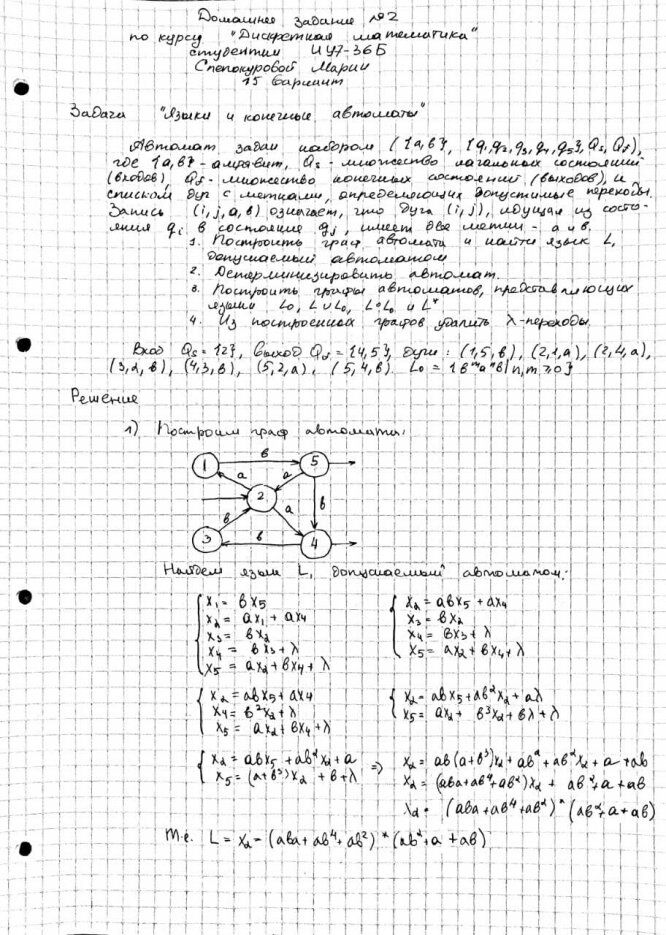 Домашнее задание №2
по курсу "Дискретная математика"
студентки ИУ7-36Б
Слепокуровой Марии
15 Вариант
Задача "Языки и конечные автоматы"
Автомат задан набором ({a,b}, {q₁,q₂,q₃,q₄,q₅}, Qs, Qf),
где {a,b} - алфавит, Qs - множество начальных состояний
(входов), Qf - множество конечных состояний (выходов), и
списком дуг с метками, определяющих допустимые переходы.
Запись (i, j, a, b) означает, что дуга (i, j), идущая из состо-
яния qi в состояние qj, имеет две метки - a и b.
1. Построить граф автомата и найти язык L,
допускаемый автоматом
2. Детерминизировать автомат.
3. Построить графы автоматов, представляющих
языки L₀, L∪L₀, L∘L₀ и L*
4. Из построенных графов удалить λ-переходы.
Вход Qs = {2}, выход Qf = {4,5}, дуги: (1,5,b), (2,1,a), (2,4,a),
(3,2,b), (4,3,b), (5,2,a), (5,4,b). L₀ = {bᵐaⁿb | n,m ≥ 0}
Решение
1) Построим граф автомата:
1 b 5
a a
2 b
b a
3 b 4
Найдем язык L, допускаемый автоматом:
x₁ = bx₅ x₂ = abx₅ + ax₄
x₂ = ax₁ + ax₄ x₃ = bx₂
x₃ = bx₂ x₄ = bx₃ + λ
x₄ = bx₃ + λ x₅ = ax₂ + bx₄ + λ
x₅ = ax₂ + bx₄ + λ
x₂ = abx₅ + ax₄ x₂ = abx₅ + ab²x₂ + aλ
x₄ = b²x₂ + λ x₅ = ax₂ + b³x₂ + bλ + λ
x₅ = ax₂ + bx₄ + λ
x₂ = abx₅ + ab²x₂ + a => x₂ = ab(a+b³)x₂ + ab² + ab²x₂ + a + ab
x₅ = (a+b³)x₂ + b + λ x₂ = (aba + ab⁴ + ab²)x₂ + ab² + a + ab
x₂ = (aba + ab⁴ + ab²)*(ab² + a + ab)
Т.е. L = x₂ = (aba + ab⁴ + ab²)*(ab² + a + ab)